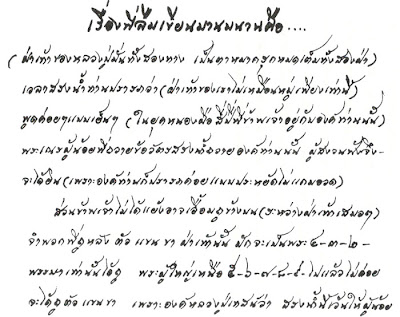 เรื่องที่ลืมเขียนมานมนานคือ....
(ฝ่าเท้าของหลวงปู่มั่นทั้งสองทาง เป็นตาหมากรุกหมดเต็มทั้งสองฝ่า)
เวลาสรงน้ำท่านปรารภว่า (ฝ่าเท้าของเราไม่เหมือนหมู่เพียงเท่านี้)
พูดค่อยๆแบบเย็นๆ (ในยุคหนองผือ สี่ปีที่ข้าพเจ้าอยู่กับองค์ท่านนั้น)
พระเณรผู้น้อยที่ถวายข้อวัตรสรงน้ำถวายองค์ท่านนั้น ผู้สงวนฟังจึง-
จะได้ยิน (เพราะองค์ท่านก็ปรารภค่อยแบบประหยัดไม่แกมอวด)
ส่วนข้าพเจ้าไม่ได้แย้งอาจเอื้อมถูข้างบน (ระหว่างฝ่าเท้าเสมอๆ)
จำพวกที่ถูหลัง ตัว แขน ขา ฝ่าเท้านั้น มักจะเป็นพระ ๔-๓-๒-
พรรษาเท่านั้นได้ถู พระผู้ใหญ่เหนือ ๕-๖-๗-๘-๙-ไปแล้วไม่ค่อย
จะได้ถูตัว แขน ขา เพราะองค์หลวงปู่เทศน์ว่า สรงน้ำนี้เว้นให้ผู้น้อย